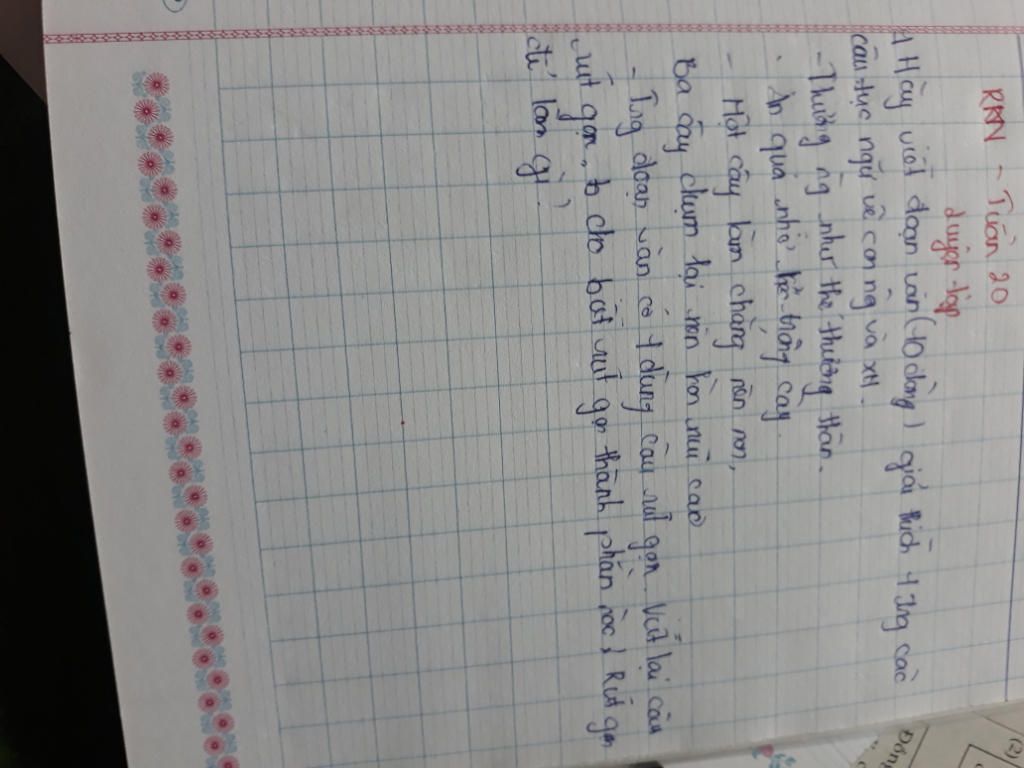 RKN - Tuần 20
Luyện tập
1 Hãy viết đoạn văn (10 dòng) giải thích 1 trg các
câu tục ngữ về con ng và XH.
- Thương ng như thể thương thân.
- Ăn quả nhớ kẻ trồng cây.
- Một cây làm chẳng nên non,
Ba cây chụm lại nên hòn núi cao
- Trg đoạn văn có 1 dùng câu rút gọn. Viết lại câu
rút gọn, b cho biết rút gọn thành phần nào? Rút gọn
để làm gì?
Đồng
(2)